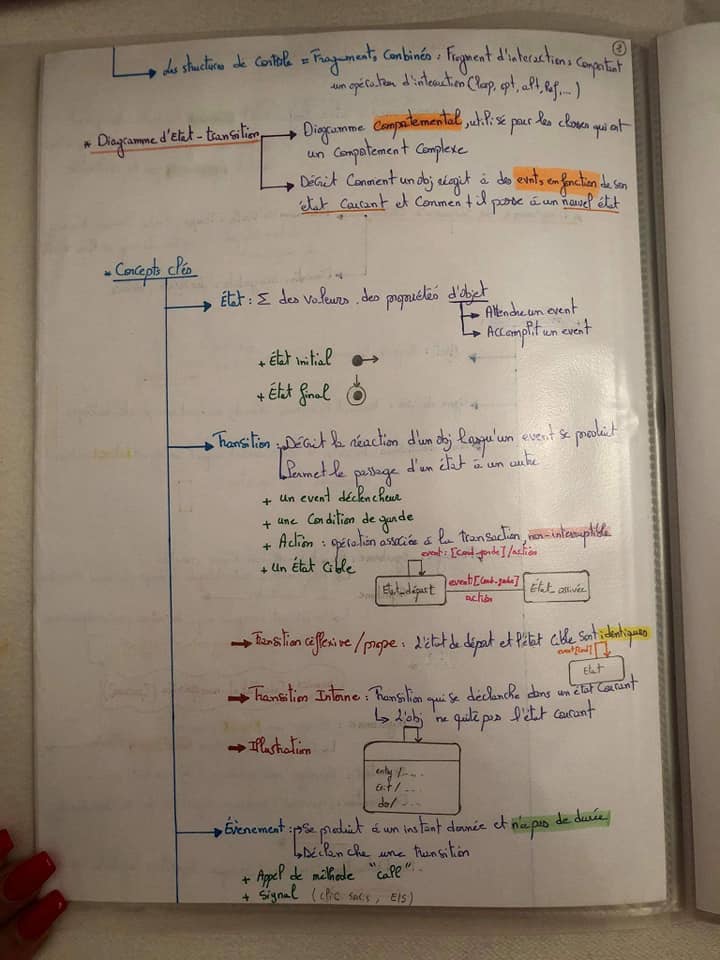 3
Les structures de Contrôle = Fragments Combinés : Fragment d'interactions Comportant
un opération d'interaction (loop, opt, alt, Ref, ...)
* Diagramme d'Etat-transition
Diagramme Comportemental, utilisé pour les classes qui ont
un Comportement Complexe
Décrit Comment un obj réagit à des evnts en fonction de son
état Courant et Comment il passe à un nouvel état
* Concepts clés
État : Σ des valeurs des propriétés d'objet
Attendre un event
Accomplit un event
+ État initial
+ État final
Transition : Décrit la réaction d'un obj lorsqu'un event se produit
Permet le passage d'un état à un autre
+ un event déclencheur
+ une Condition de garde
+ Action : opération associée à la transaction, non-interruptible
event: [Cond-garde]/action
+ Un État Cible
État_départ
event[Cond-garde]
action
Etat_arrivée
Transition réflexive/propre : L'état de départ et l'état Cible sont identiques
event[cond]
Etat
Transition Interne : Transition qui se déclanche dans un état Courant
L'obj ne quite pas l'état courant
Illustration
entry/....
exit/ ....
do/ ....
Évènement : Se produit à un instant donnée et n'a pas de durée
Déclenche une transition
+ Appel de méthode "call"
+ signal (clic souris, E/S)